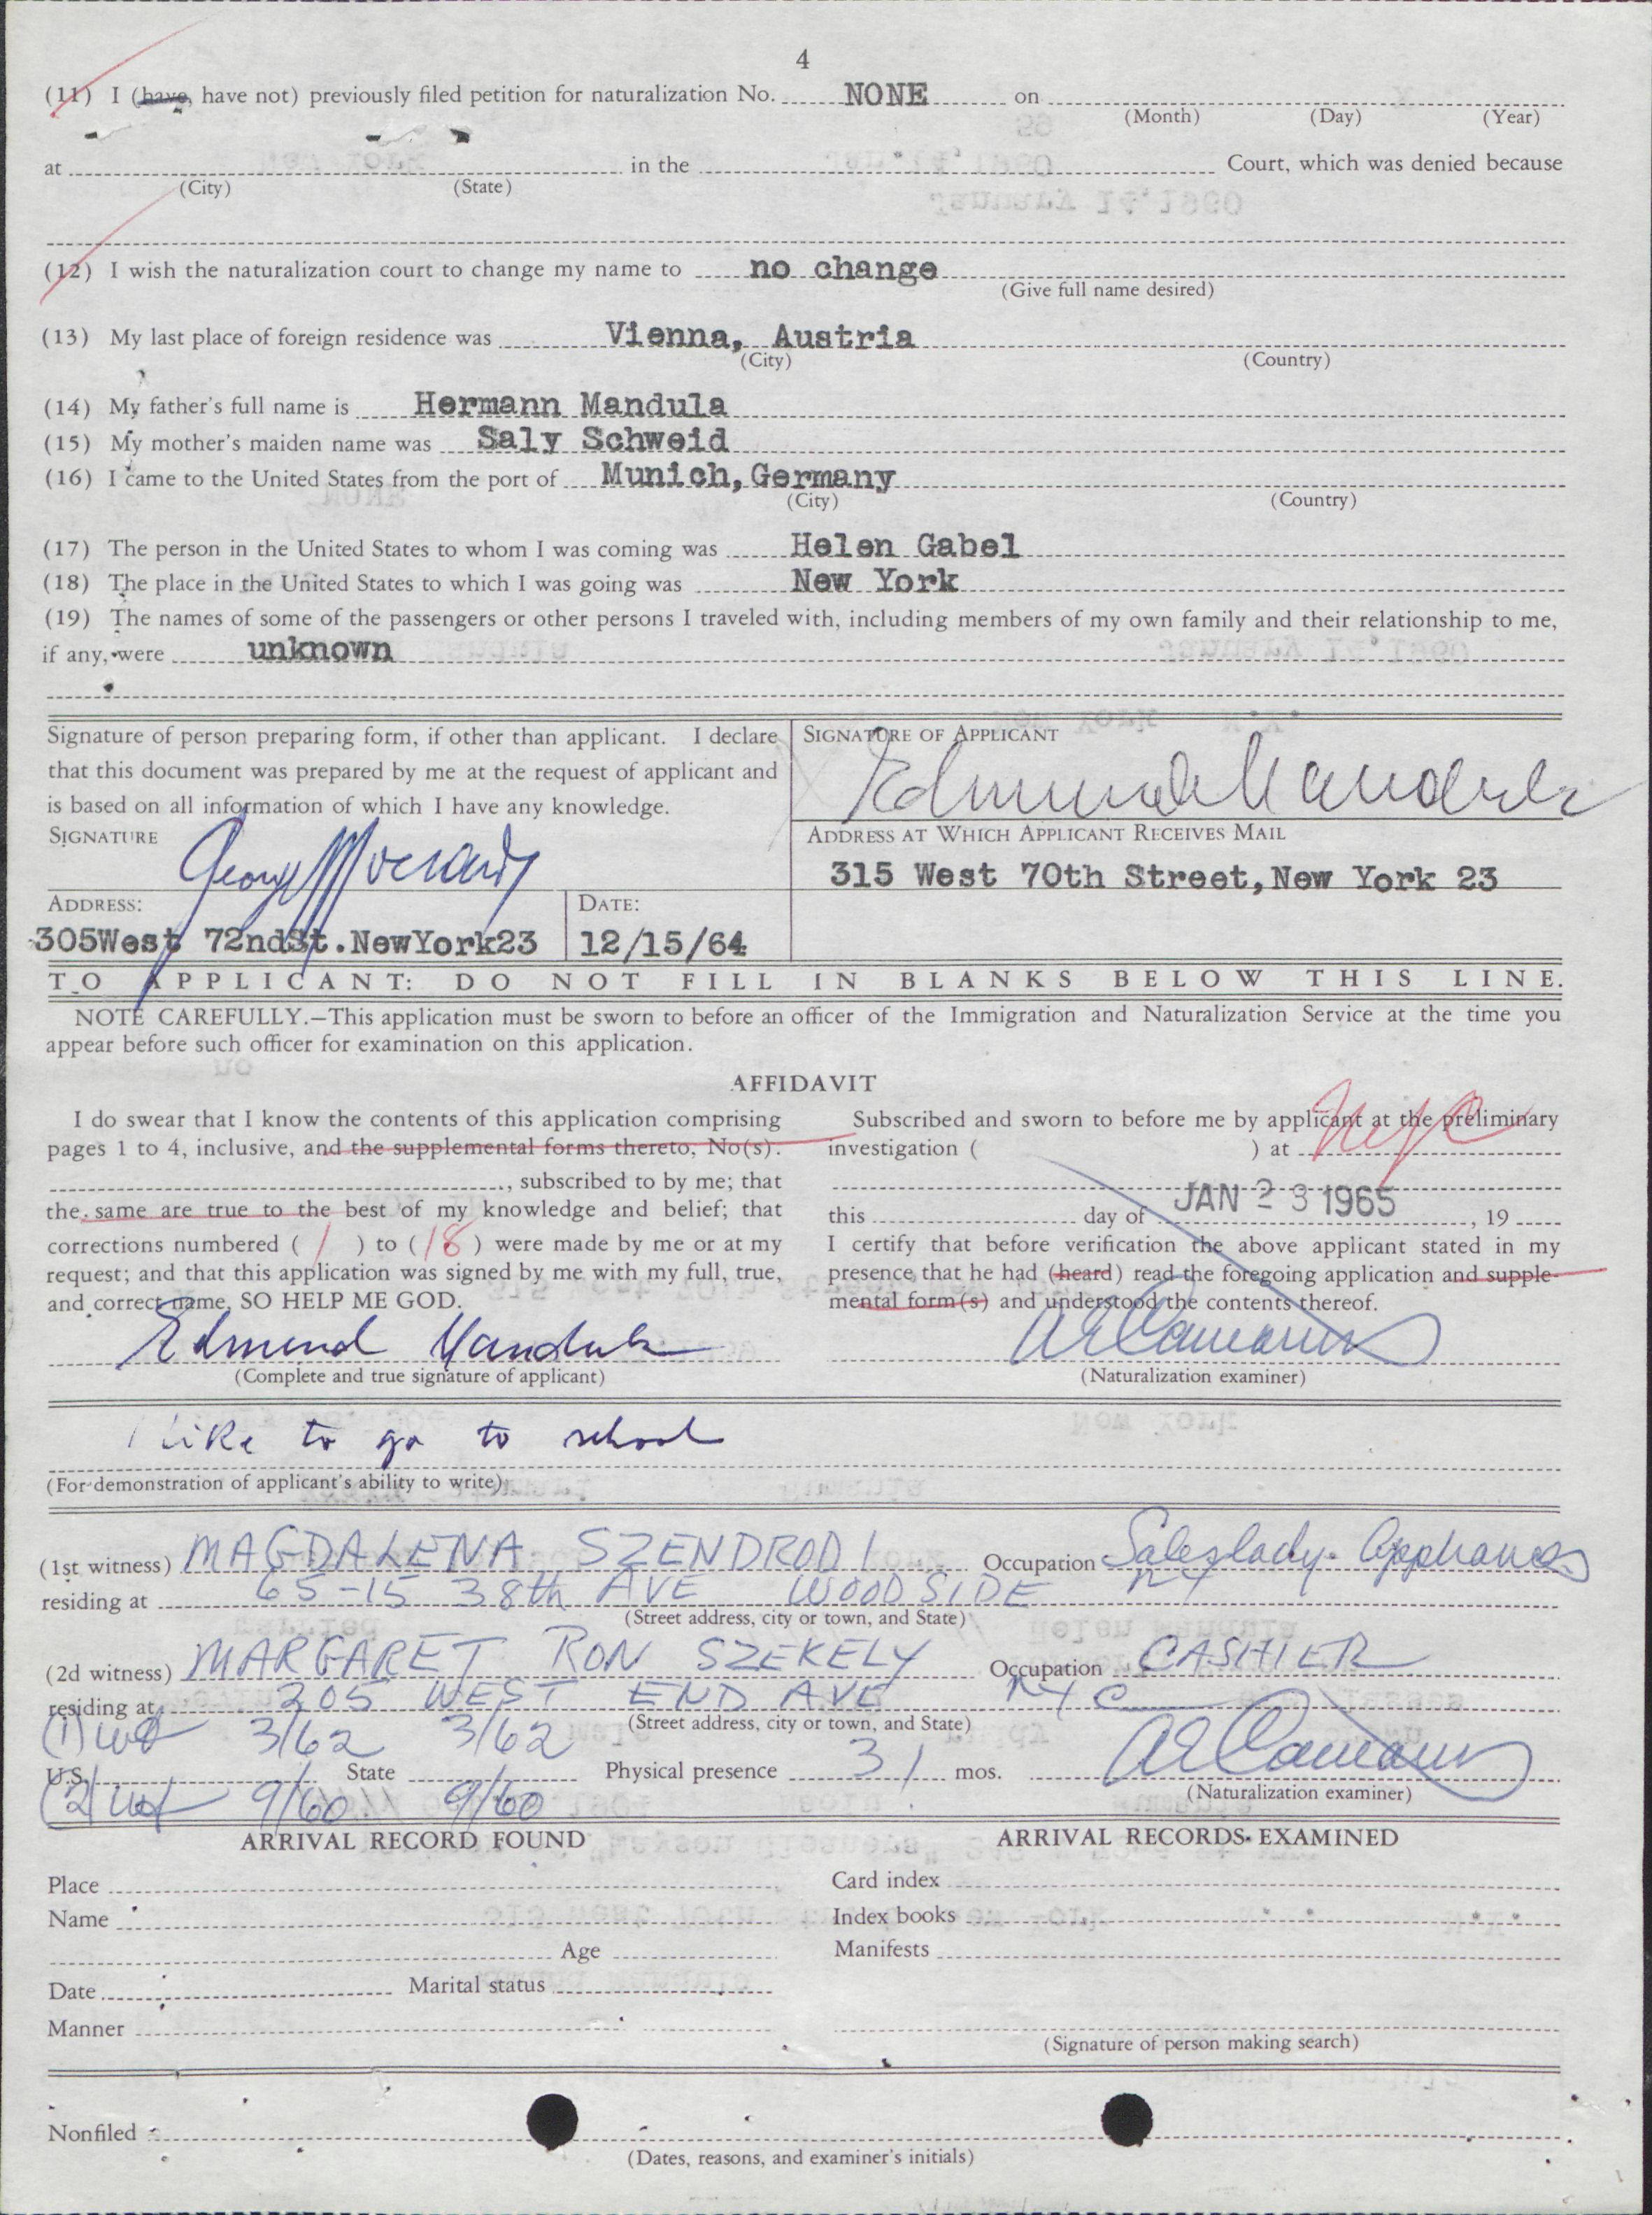 4
(11) I (have, have not) previously filed petition for naturalization No. NONE on
(Month) (Day) (Year)
at in the Court, which was denied because
(City) (State)
(12) I wish the naturalization court to change my name to no change
(Give full name desired)
(13) My last place of foreign residence was Vienna, Austria
(City) (Country)
(14) My father's full name is Hermann Mandula
(15) My mother's maiden name was Saly Schweid
(16) I came to the United States from the port of Munich, Germany
(City) (Country)
(17) The person in the United States to whom I was coming was Helen Gabel
(18) The place in the United States to which I was going was New York
(19) The names of some of the passengers or other persons I traveled with, including members of my own family and their relationship to me,
if any, were unknown
Signature of person preparing form, if other than applicant. I declare
that this document was prepared by me at the request of applicant and
is based on all information of which I have any knowledge.
SIGNATURE
George
ADDRESS:
305West 72ndSt.NewYork23
DATE:
12/15/64
SIGNATURE OF APPLICANT
Edmund Mandula
ADDRESS AT WHICH APPLICANT RECEIVES MAIL
315 West 70th Street, New York 23
TO APPLICANT: DO NOT FILL IN BLANKS BELOW THIS LINE.
NOTE CAREFULLY.—This application must be sworn to before an officer of the Immigration and Naturalization Service at the time you
appear before such officer for examination on this application.
AFFIDAVIT
I do swear that I know the contents of this application comprising
pages 1 to 4, inclusive, and the supplemental forms thereto, No(s).
, subscribed to by me; that
the same are true to the best of my knowledge and belief; that
corrections numbered ( 1 ) to ( 18 ) were made by me or at my
request; and that this application was signed by me with my full, true,
and correct name, SO HELP ME GOD.
Edmund Mandula
(Complete and true signature of applicant)
Subscribed and sworn to before me by applicant at the preliminary
investigation ( ) at NYC
JAN 23 1965
this day of , 19
I certify that before verification the above applicant stated in my
presence that he had (heard) read the foregoing application and supple-
mental form(s) and understood the contents thereof.
(Naturalization examiner)
I like to go to school
(For demonstration of applicant's ability to write)
(1st witness) MAGDALENA SZENDRODI Occupation Saleslady- Appliances
residing at 65-15 38th AVE WOODSIDE NY
(Street address, city or town, and State)
(2d witness) MARGARET RON SZEKELY Occupation CASHIER
residing at 205 WEST END AVE NYC
(Street address, city or town, and State)
(1) wit 3/62 3/62
U.S. State Physical presence 31 mos.
(2) wit 9/60 9/60
(Naturalization examiner)
ARRIVAL RECORD FOUND
Place
Name
Age
Date Marital status
Manner
ARRIVAL RECORDS EXAMINED
Card index
Index books
Manifests
(Signature of person making search)
Nonfiled
(Dates, reasons, and examiner's initials)